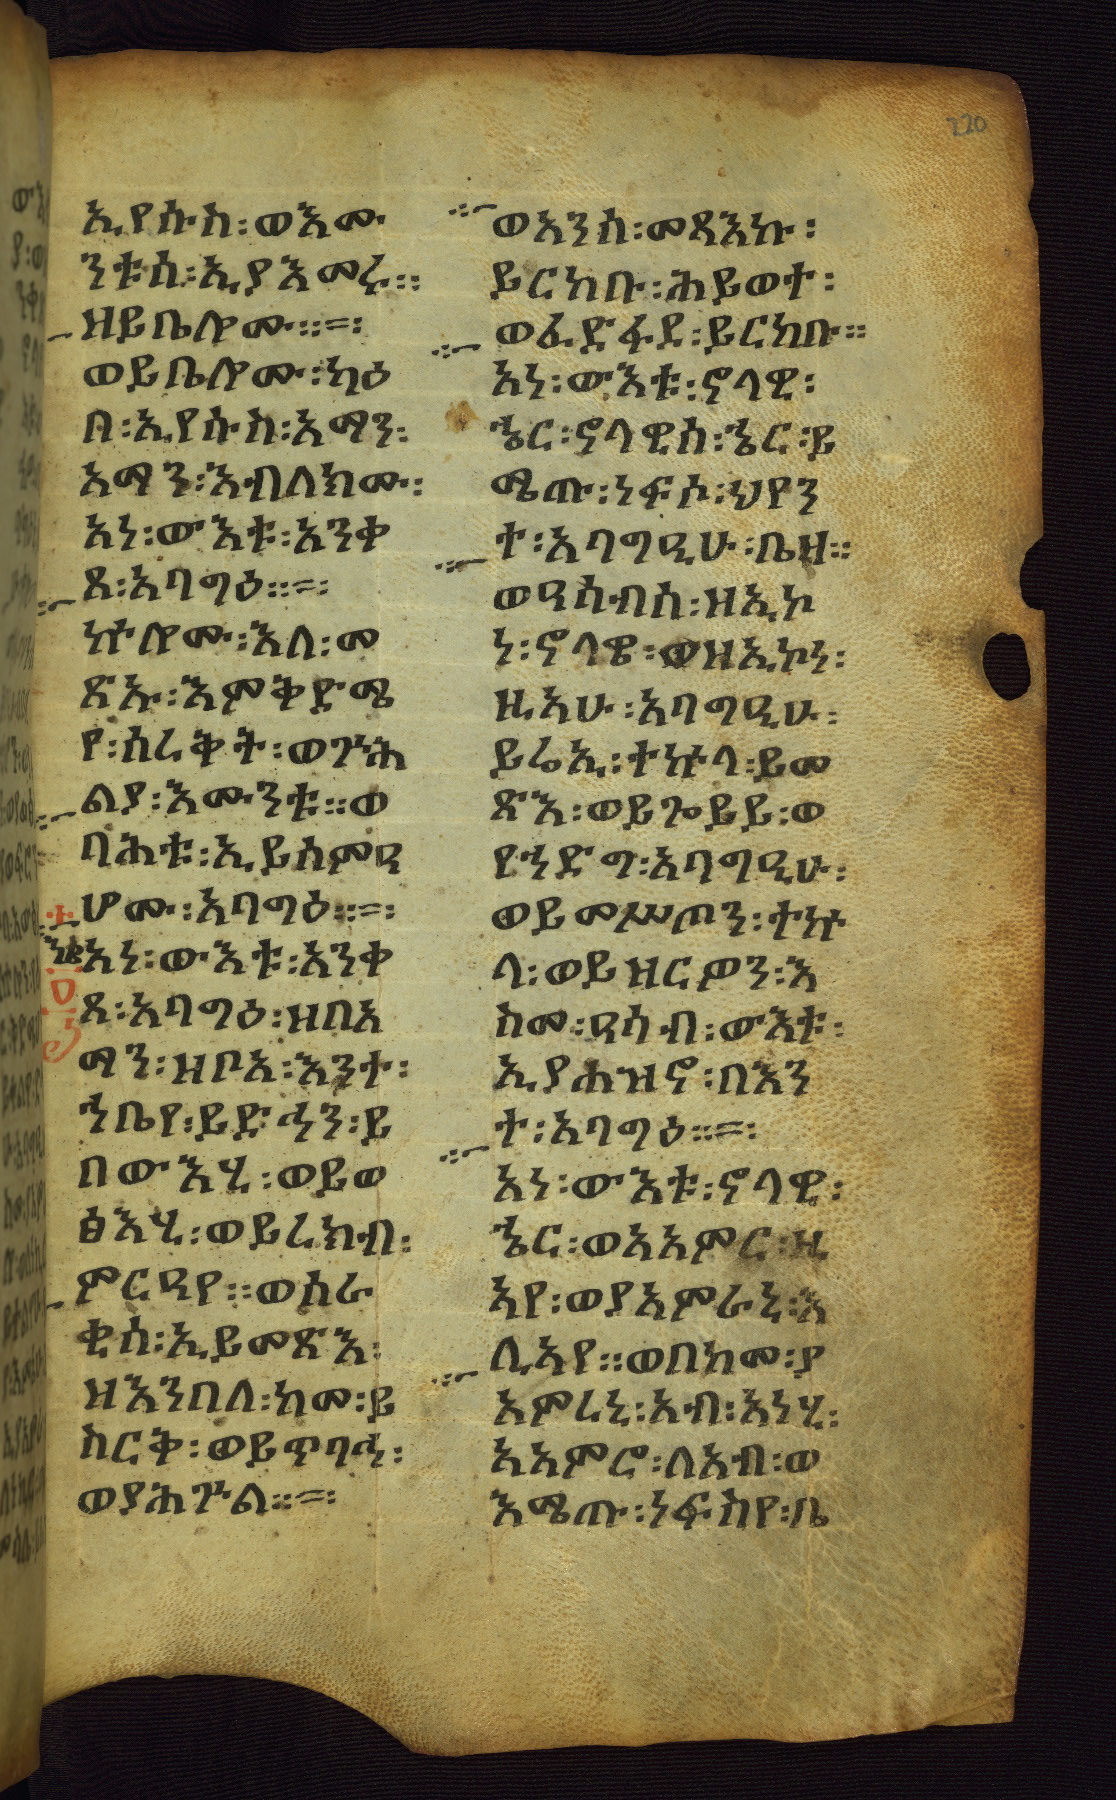 220
ኢየሱስ፡ወእሙ
ንቱሰ፡ኢያእመሩ።
ዘይቤሎሙ።=፡
ወይቤሎሙ፡ካዕ
በ፡ኢየሱስ፡አማን፡
አማን፡እብለክሙ፡
አነ፡ውእቱ፡አንቀ
ጸ፡አባግዕ።=፡
ኵሎሙ፡እለ፡መ
ጽኡ፡እምቅድሜ
የ፡ሰረቅት፡ወጕሕ
ልያ፡እሙንቱ።ወ
ባሕቱ፡ኢይሰምዓ
ሆሙ፡አባግዕ።=፡
አነ፡ውእቱ፡አንቀ
ጸ፡አባግዕ፡ዘበአ
ማን፡ዘቦአ፡እንተ፡
ኀቤየ፡ይድኅን፡ይ
በውእሂ፡ወይወ
ፅእሂ፡ወይረክብ፡
ምርዓየ።ወሰራ
ቂሰ፡ኢይመጽእ፡
ዘእንበለ፡ከመ፡ይ
ስርቅ፡ወይጥባኅ፡
ወያሕጕል።=፡
ወአንሰ፡መጻእኩ፡
ይርከቡ፡ሕይወተ፡
ወፈድፋደ፡ይርከቡ።
አነ፡ውእቱ፡ኖላዊ፡
ኄር፡ኖላዊሰ፡ኄር፡ይ
ሜጡ፡ነፍሶ፡ህየን
ተ፡አባግዒሁ፡ቤዛ።
ወዓሳብሰ፡ዘኢኮ
ነ፡ኖላዌ፡ወዘኢኮነ፡
ዚአሁ፡አባግዒሁ፡
ይሬኢ፡ተኵላ፡ይመ
ጽእ፡ወይጐይይ፡ወ
የኀድግ፡አባግዒሁ፡
ወይመሥጦን፡ተኵ
ላ፡ወይዘርዎን፡እ
ስመ፡ዓሳብ፡ውእቱ፡
ኢያሐዝኖ፡በእን
ተ፡አባግዕ።=፡
አነ፡ውእቱ፡ኖላዊ፡
ኄር፡ወአአምር፡ዚ
አየ፡ወያአምራኒ፡እ
ሊአየ።ወበከመ፡ያ
አምረኒ፡አብ፡አነሂ፡
አአምሮ፡ለአብ፡ወ
እሜጡ፡ነፍስየ፡ቤ